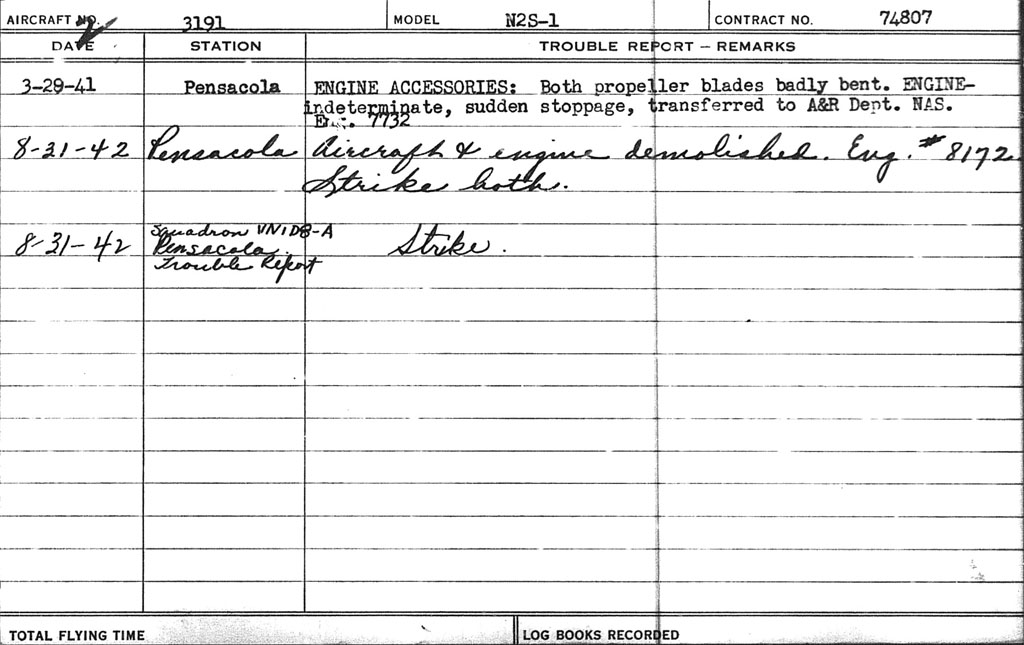 AIRCRAFT NO. 3191 MODEL N2S-1 CONTRACT NO. 74807
DATE STATION TROUBLE REPORT — REMARKS
3-29-41 Pensacola ENGINE ACCESSORIES: Both propeller blades badly bent. ENGINE-
indeterminate, sudden stoppage, transferred to A&R Dept. NAS.
7732
8-21-42 Pensacola Aircraft & engine demolished. Eng. #8172
Strike both.
Squadron VN1D8-A
8-31-42 Pensacola Strike.
Trouble Report
TOTAL FLYING TIME LOG BOOKS RECORDED